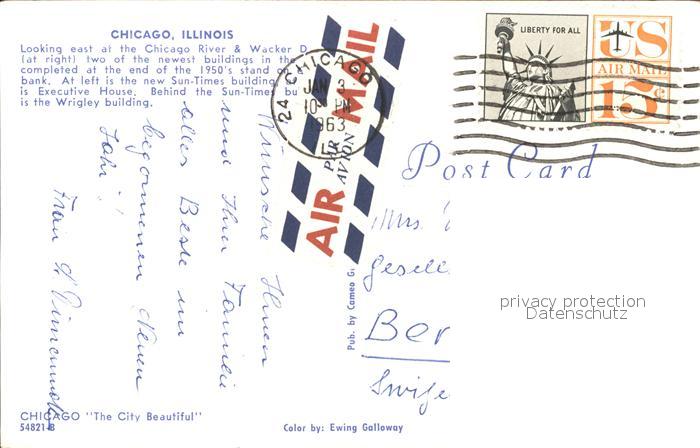 CHICAGO, ILLINOIS
Looking east at the Chicago River & Wacker D
(at right) two of the newest buildings in the
completed at the end of the 1950's stand
bank. At left is the new Sun-Times building
is Executive House. Behind the Sun-Times bu
is the Wrigley building.
AIR MAIL
PAR AVION
24 CHICAGO
JAN 3
10 PM
1963
LIBERTY FOR ALL
US
AIR MAIL
15c
Post Card
Wünsche Ihnen
und Ihrer Familie
alles Beste im
begonnenen Neuen
Jahr!
Mrs.
Gesell
Ber
Pub. by Cameo G
privacy protection
Datenschutz
CHICAGO "The City Beautiful"
54821-B
Color by: Ewing Galloway